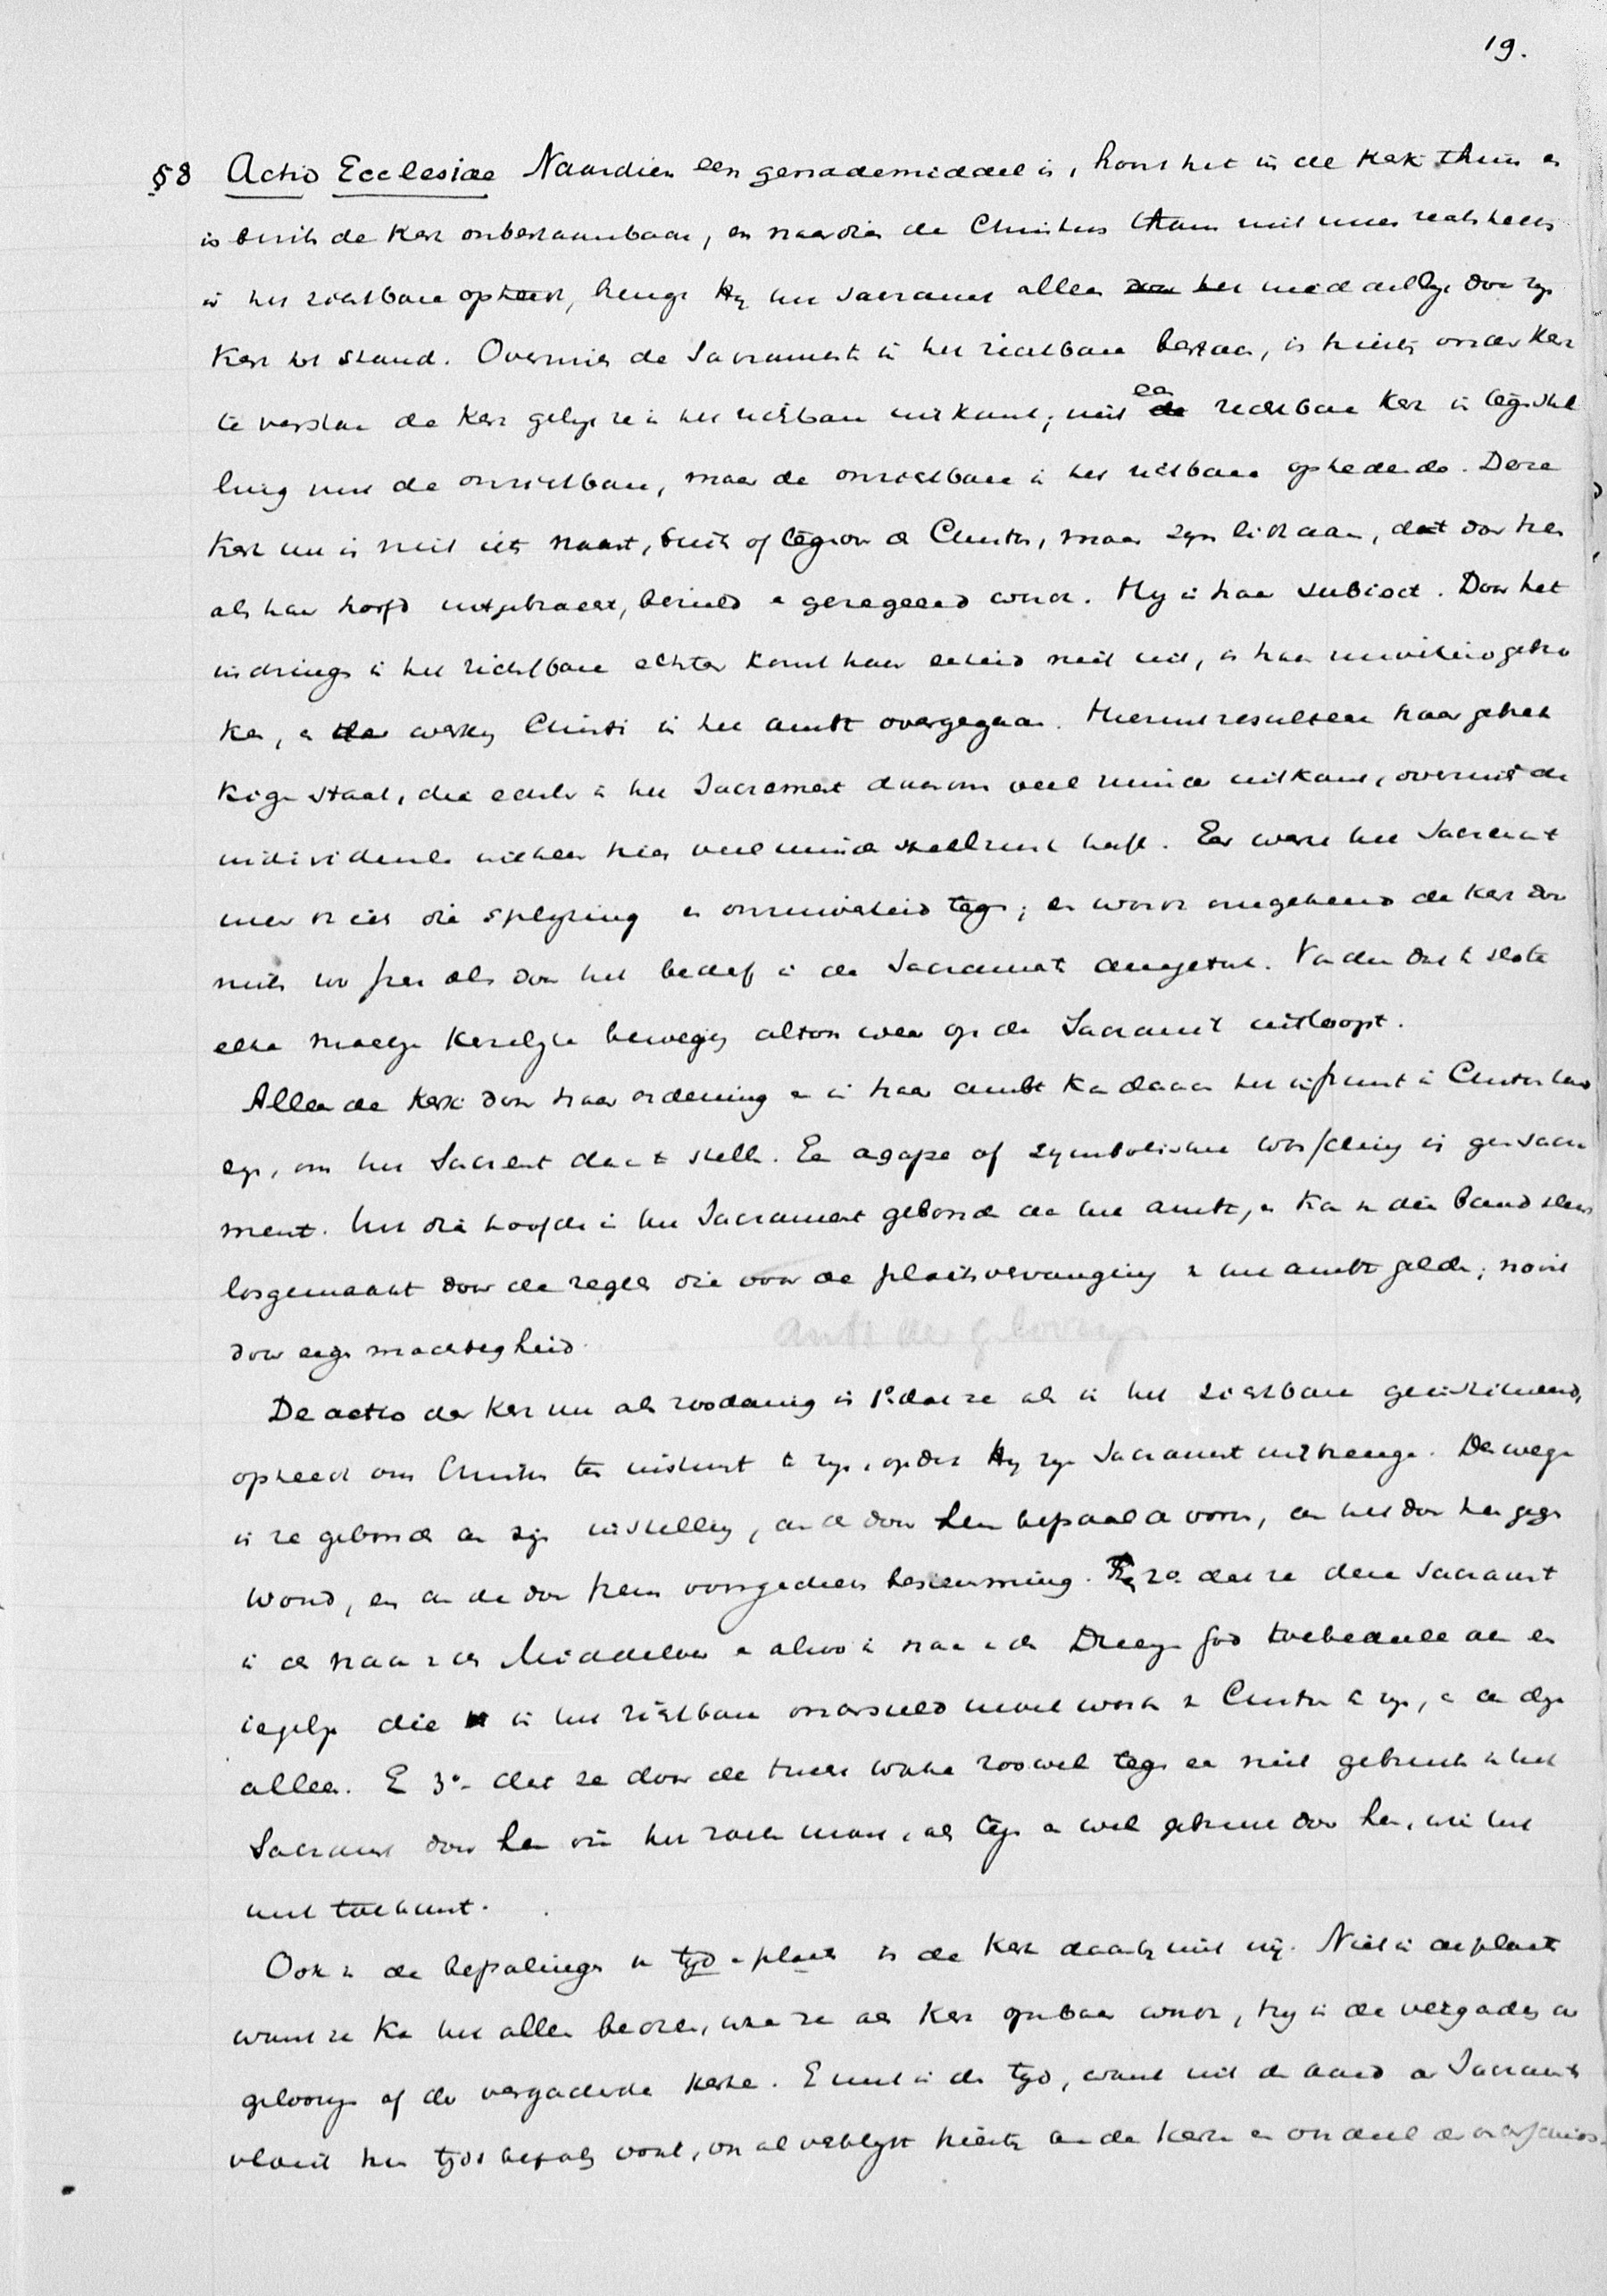 19.
§8 Actio Ecclesiae Naardien een genademiddel is, hoort het in de Kerk thuis en
is buiten de Kerk onbestaanbaar, en naardien de Christus thans niet meer rechtstreeks
in het zichtbare optreedt, brengt Hij het Sacrament alleen door het middellijk door zijn
Kerk tot stand. Overmits de Sacramenten in het zichtbare bestaan, is hierbij onder Kerk
te verstaan de Kerk gelijk ze in het zichtbare uitkomt; niet een de zichtbare Kerk in tegenstel
ling met de onzichtbare, maar de onzichtbare in het zichtbare optredende. Deze
Kerk nu is niet iets naast, buiten of tegenover de Christus, maar zijn lichaam, dat door hem
als haar hoofd uitgebracht, bezield en geregeerd wordt. Hij is haar subject. Door het
indringen in het zichtbare echter komt haar eenheid niet uit, is haar onreinheid gebro
ken, en de werking Christi in het ambt overgegaan. Hieruit resulteert haar gebrek
kige staat, die echter in het Sacrament daarom veel minder uitkomt, overmits de
individueele hier veel minder speelruimte heeft. Eer werkt het Sacrament
meer die splijting en onreinheid tegen; en wordt omgekeerd de Kerk door
niets zoo zeer als door het bederf in de Sacramenten aangetast. Vandaar dat ten slotte
elke machtige Kerkelijke beweging altoos weer op de Sacramenten uitloopt.
Alleen de Kerk door haar ordening en in haar ambt kan daarom het instrument in Christus hand
zijn, om het Sacrament daar te stellen. Een agape of symbolische is geen Sacra
ment. Uit dien hoofde is het Sacrament gebonden aan het ambt, en kan van dien band slechts
losgemaakt door de regels die voor de plaatsvervanging van het ambt gelden; nooit
door eigen machtigheid.
ambt der geloovigen
De actio der Kerk nu als zoodanig is 1º. dat ze als in het zichtbare geïnstitueerd,
optreedt om Christus ten instrument te zijn, opdat Hij zijn Sacrament uitbrenge. Deswege
is ze gebonden aan zijn instelling, aan de door hem bepaalde vorm, aan het door hem gegeven
woord, en aan de door hem voorgeschreven bestemming. 2º. dat ze deze Sacrament
in den naam des Middelaars en alzoo in naam des Drieëenigen God toebedeele aan een
iegelijk die in het zichtbare ondersteld moet worden van Christus te zijn, en aan deze
alleen. En 3º. dat ze door de tucht wake zoowel tegen een niet gebruik van het
Sacrament door hen die het zoeken moet, als tegen een wel gebruik door hen, wie het
niet toekomt.
Ook in de bepalingen van tijd en plaats is de Kerk daarbij niet vrij. Niet in de plaats
want ze kan het alleen bedienen, waar ze als Kerk openbaar wordt, hetzij in de vergadering der
geloovigen of de vergaderde Kerke. En niet in den tijd, want uit den aard der Sacramenten
vloeit hun tijdsbepaling voort, en al verblijft hierbij aan de Kerk een oordeel